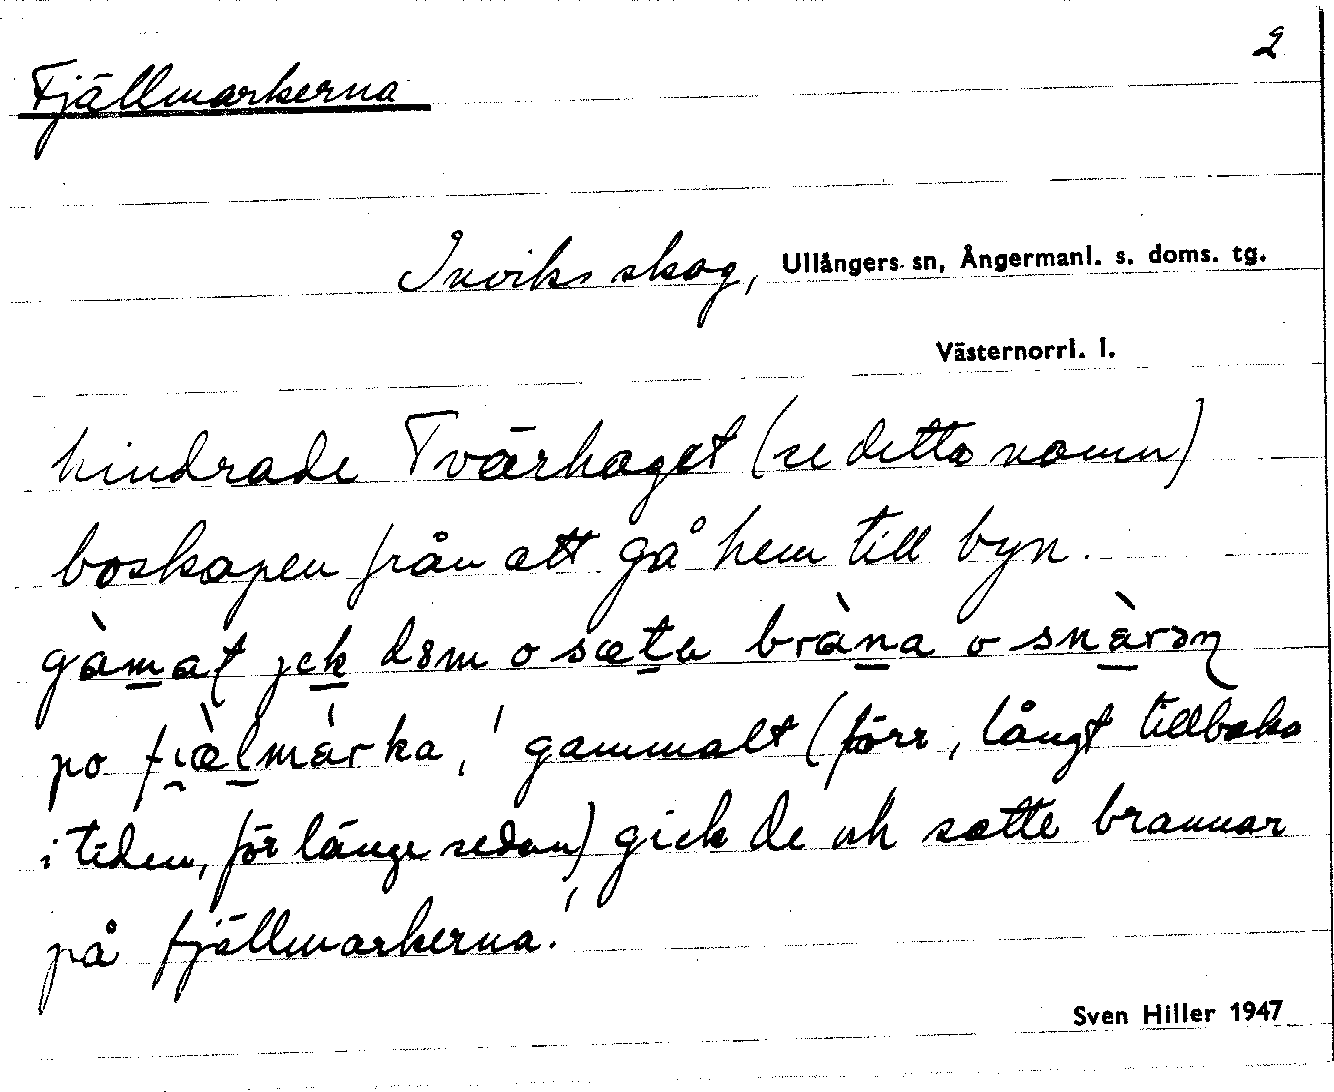 2
Fjällmarkerna
Inviks skog, Ullångers sn, Ångermanl. s. doms. tg.
Västernorrl. l.
hindrade Tvärhaget (se detta namn)
boskapen från att gå hem till byn.
gàmaļt jek dɷm o sæta bràna o snàrɷn
po fjæ̀lmárka, ' gammalt (förr, långt tillbaka
i tiden, för länge sedan) gick de och satte brännor
på fjällmarkerna.'
Sven Hiller 1947